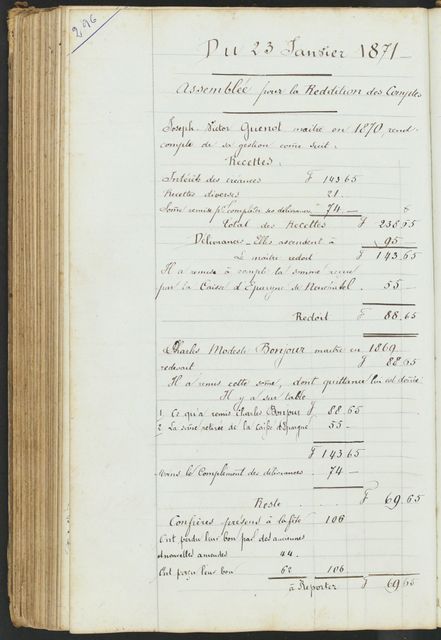 296
Du 23 Janvier 1871
Assemblée pour la Reddition des Comptes
Joseph-Victor Quenot maître en 1870, rend
compte de sa gestion come suit:
Recettes:
Intérêts des créances F 143.65
Recettes diverses 21.—
Some remise pr compléter ses délivrances 74.—
Total des Recettes F 238.65
Délivrances. Elles ascendent à 95.—
Le maître redoit F 143.65
Il a remis à compte la somme reçue
par la Caisse d'Epargne de Neuchâtel. 55.—
Redoit F 88.65
Charles Modeste Bonjour maître en 1869
redevait F 88.65
Il a remis cette some, dont quittance lui est donnée
Il y a sur table
1. Ce qu'a remis Charles Bonjour F 88.65
2. La some retirée de la caisse d'Epargne 55—
F 143.65
Moins le Complément des délivrances. 74—
Reste F 69.65
Confrères présens à la fête 106
Ont perdu leur bon par des anciennes
et nouvelles amendes 44.
Ont perçu leur bon 62 106.
à Reporter F 69.65